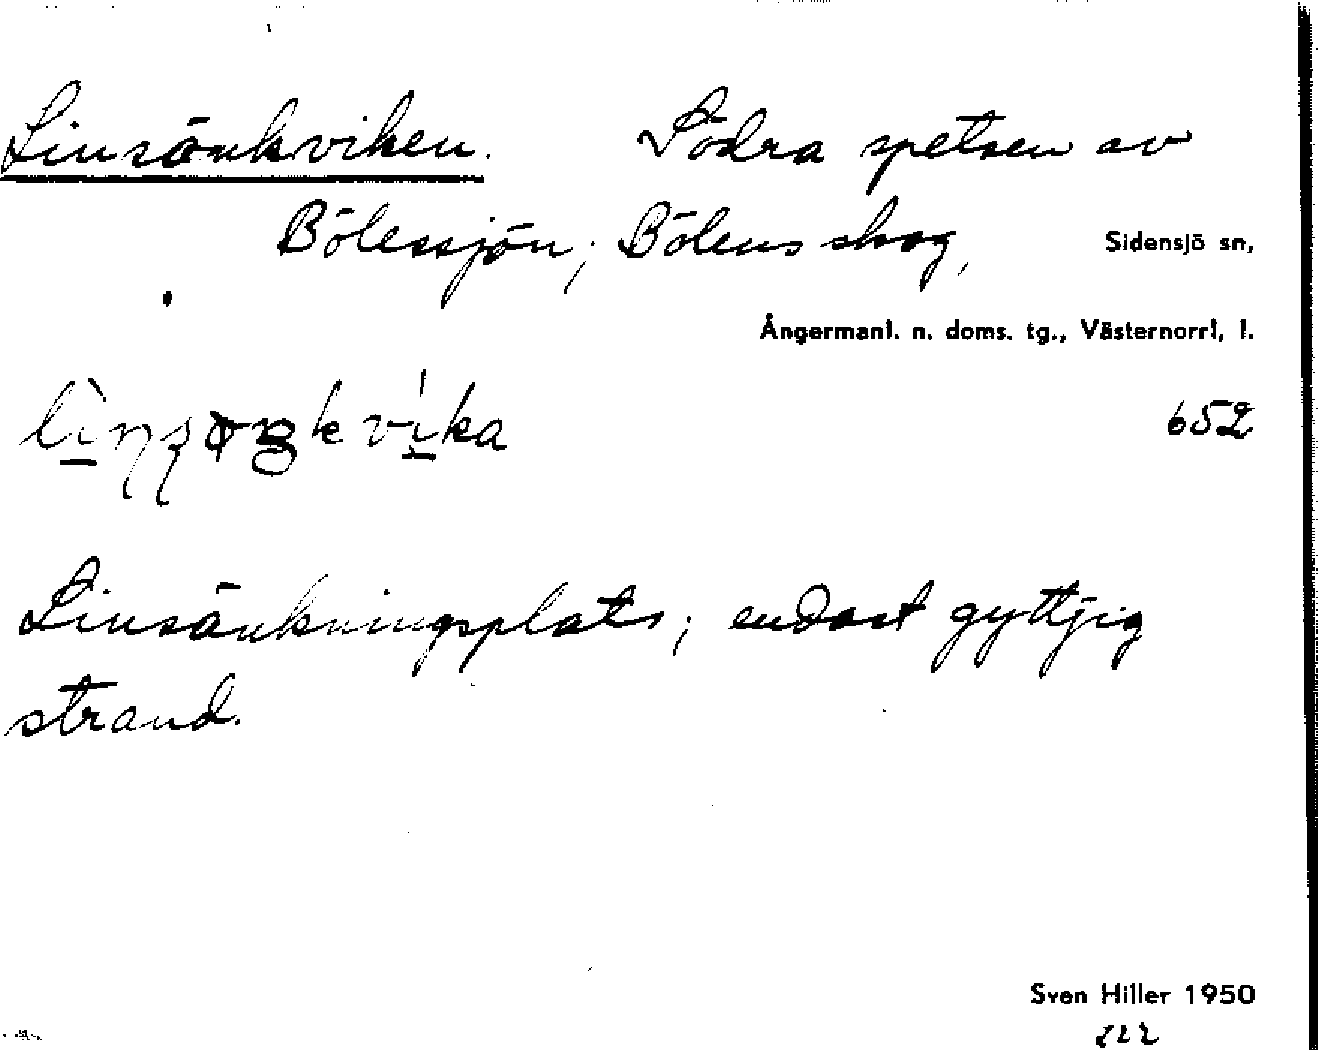 Linsänkviken. Södra spetsen av
Bölessjön; Bölens skog, Sidensjö sn,
Ångermanl. n. doms. tg., Västernorrl, l.
652
Linsänkningsplats; endast gyttjig
strand.
Sven Hiller 1950